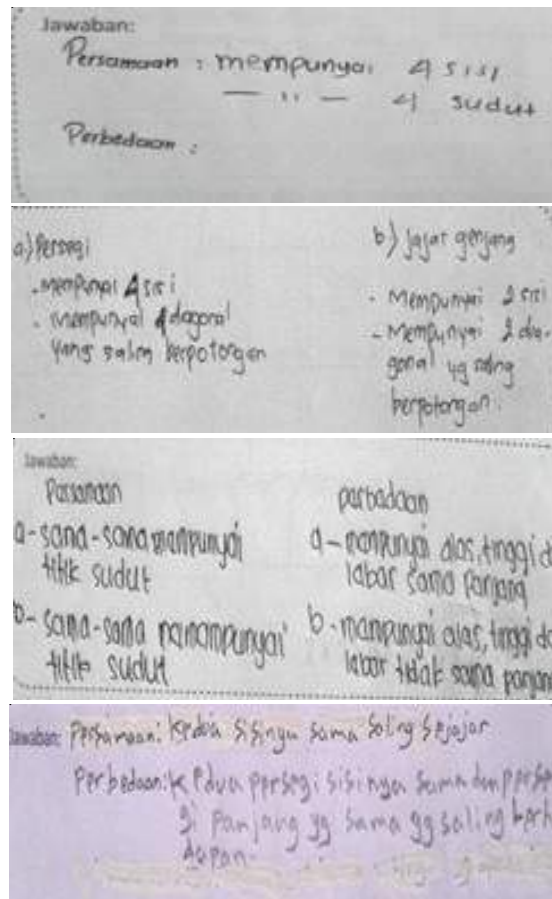 Jawaban:
Persamaan : mempunyai 4 sisi
— " — 4 sudut
Perbedaan :
a) Persegi
- mempunyai 4 sisi
- mempunyai 4 diagonal
yang saling berpotongan
b) jajar genjang
- Mempunyai 2 sisi
- Mempunyai 2 dia-
gonal yg saling
berpotongan.
Jawaban:
Parsamaan
a- sama-sama manpunyai
titik sudut
b- sama-sama mamampunyai
titik sudut
parbadaan
a- manpunyai alas, tinggi d
labar sama panjang
b- manpunyai alas, tinggi da
labar tidak sama panjan
Jawaban: Persamaan: kedua sisinya sama saling sejajar
Perbedaan: kedua persegi sisinya sama dan perse
gi panjang yg sama yg saling berh
dapan.